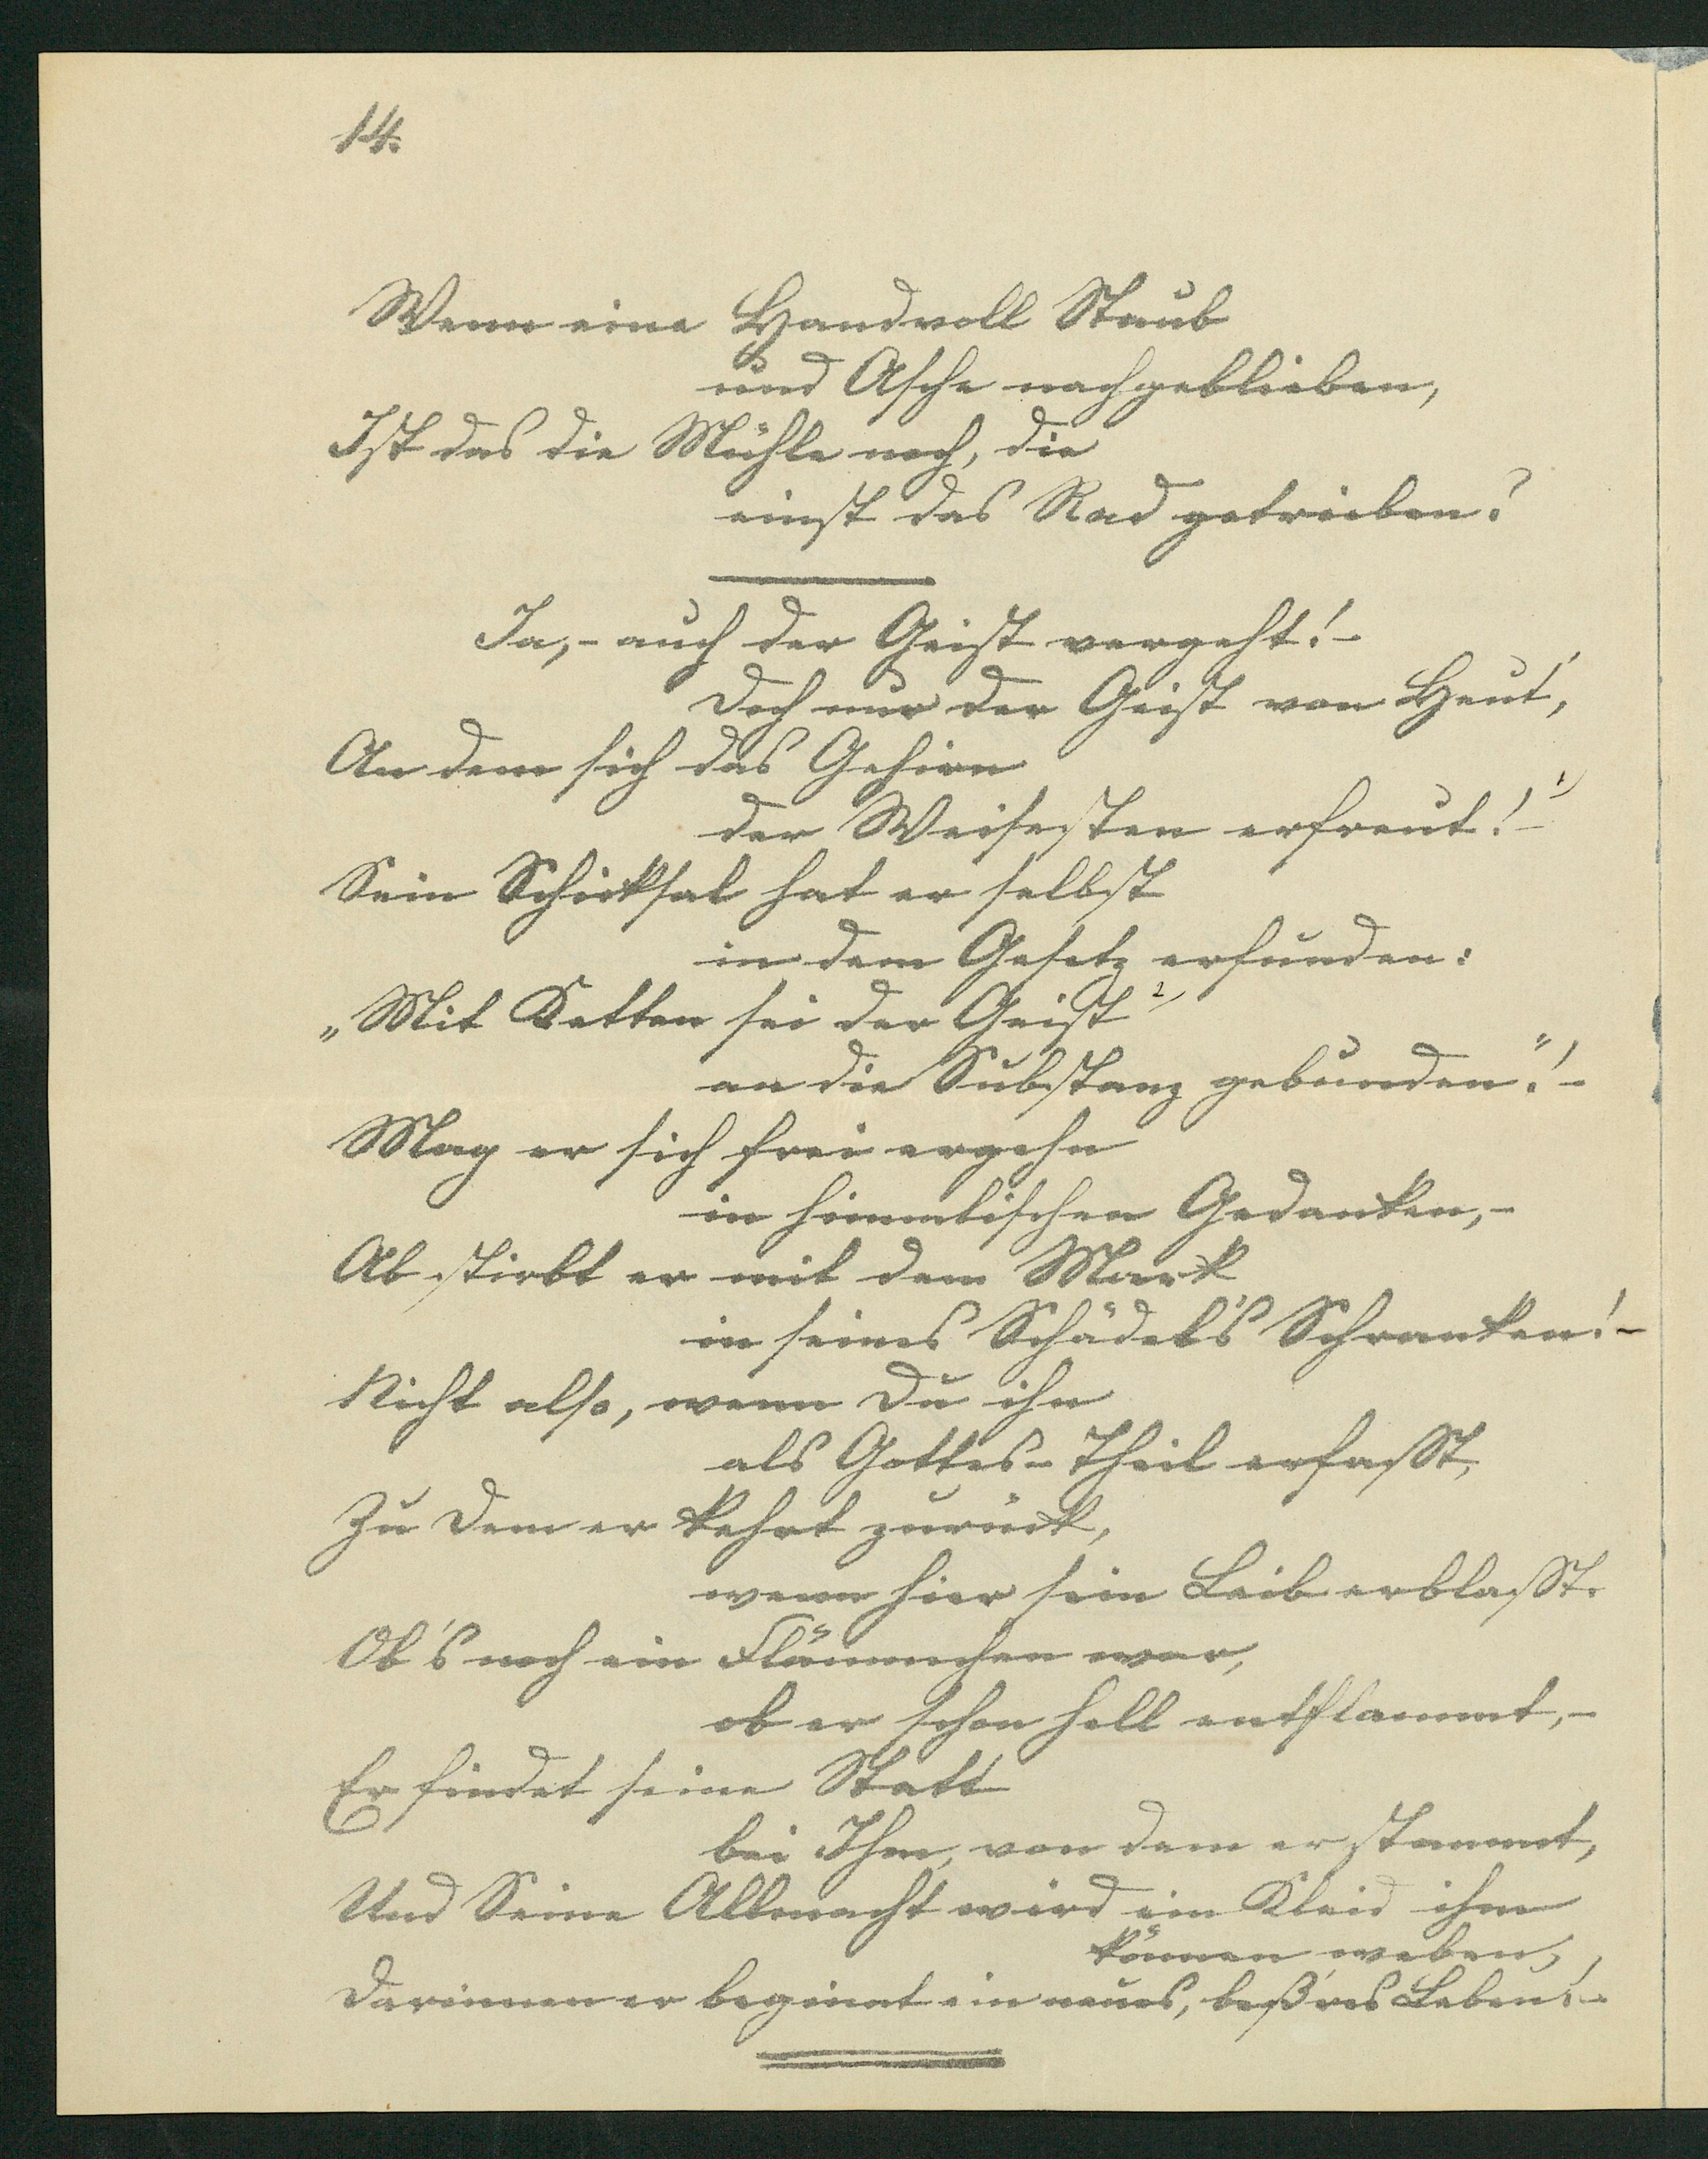 14.
Wenn eine Handvoll Staub
und Asche nachgeblieben,
Ist das die Mühle noch, die
einst das Rad getrieben?
Ja, - auch der Geist vergeht! -
Doch nur der Geist von Heut',
An dem sich das Gehirn
der Weisesten erfreut! - 1)
Sein Schicksal hat er selbst
in dem Gesetz erfunden:
„Mit Ketten sei der Geist 2)
an die Substanz gebunden"! -
Mag er sich frei ergehn
in himmlischen Gedanken, -
Ab stirbt er mit dem Mark
in seines Schädel's Schranken! -
Nicht also, wenn Du ihn
als Gottes-Theil erfaßt,
Zu Dem er kehrt zurück,
wenn hier sein Leib erblaßt.
Ob's noch ein Flämmchen war,
ob er schon hell entflammt, -
Er findet seine Statt
bei Ihm, von dem er stammt,
Und Seine Allmacht wird ein Kleid ihm
können weben,
Darinnen er beginnt ein neues, beß'res Leben! -